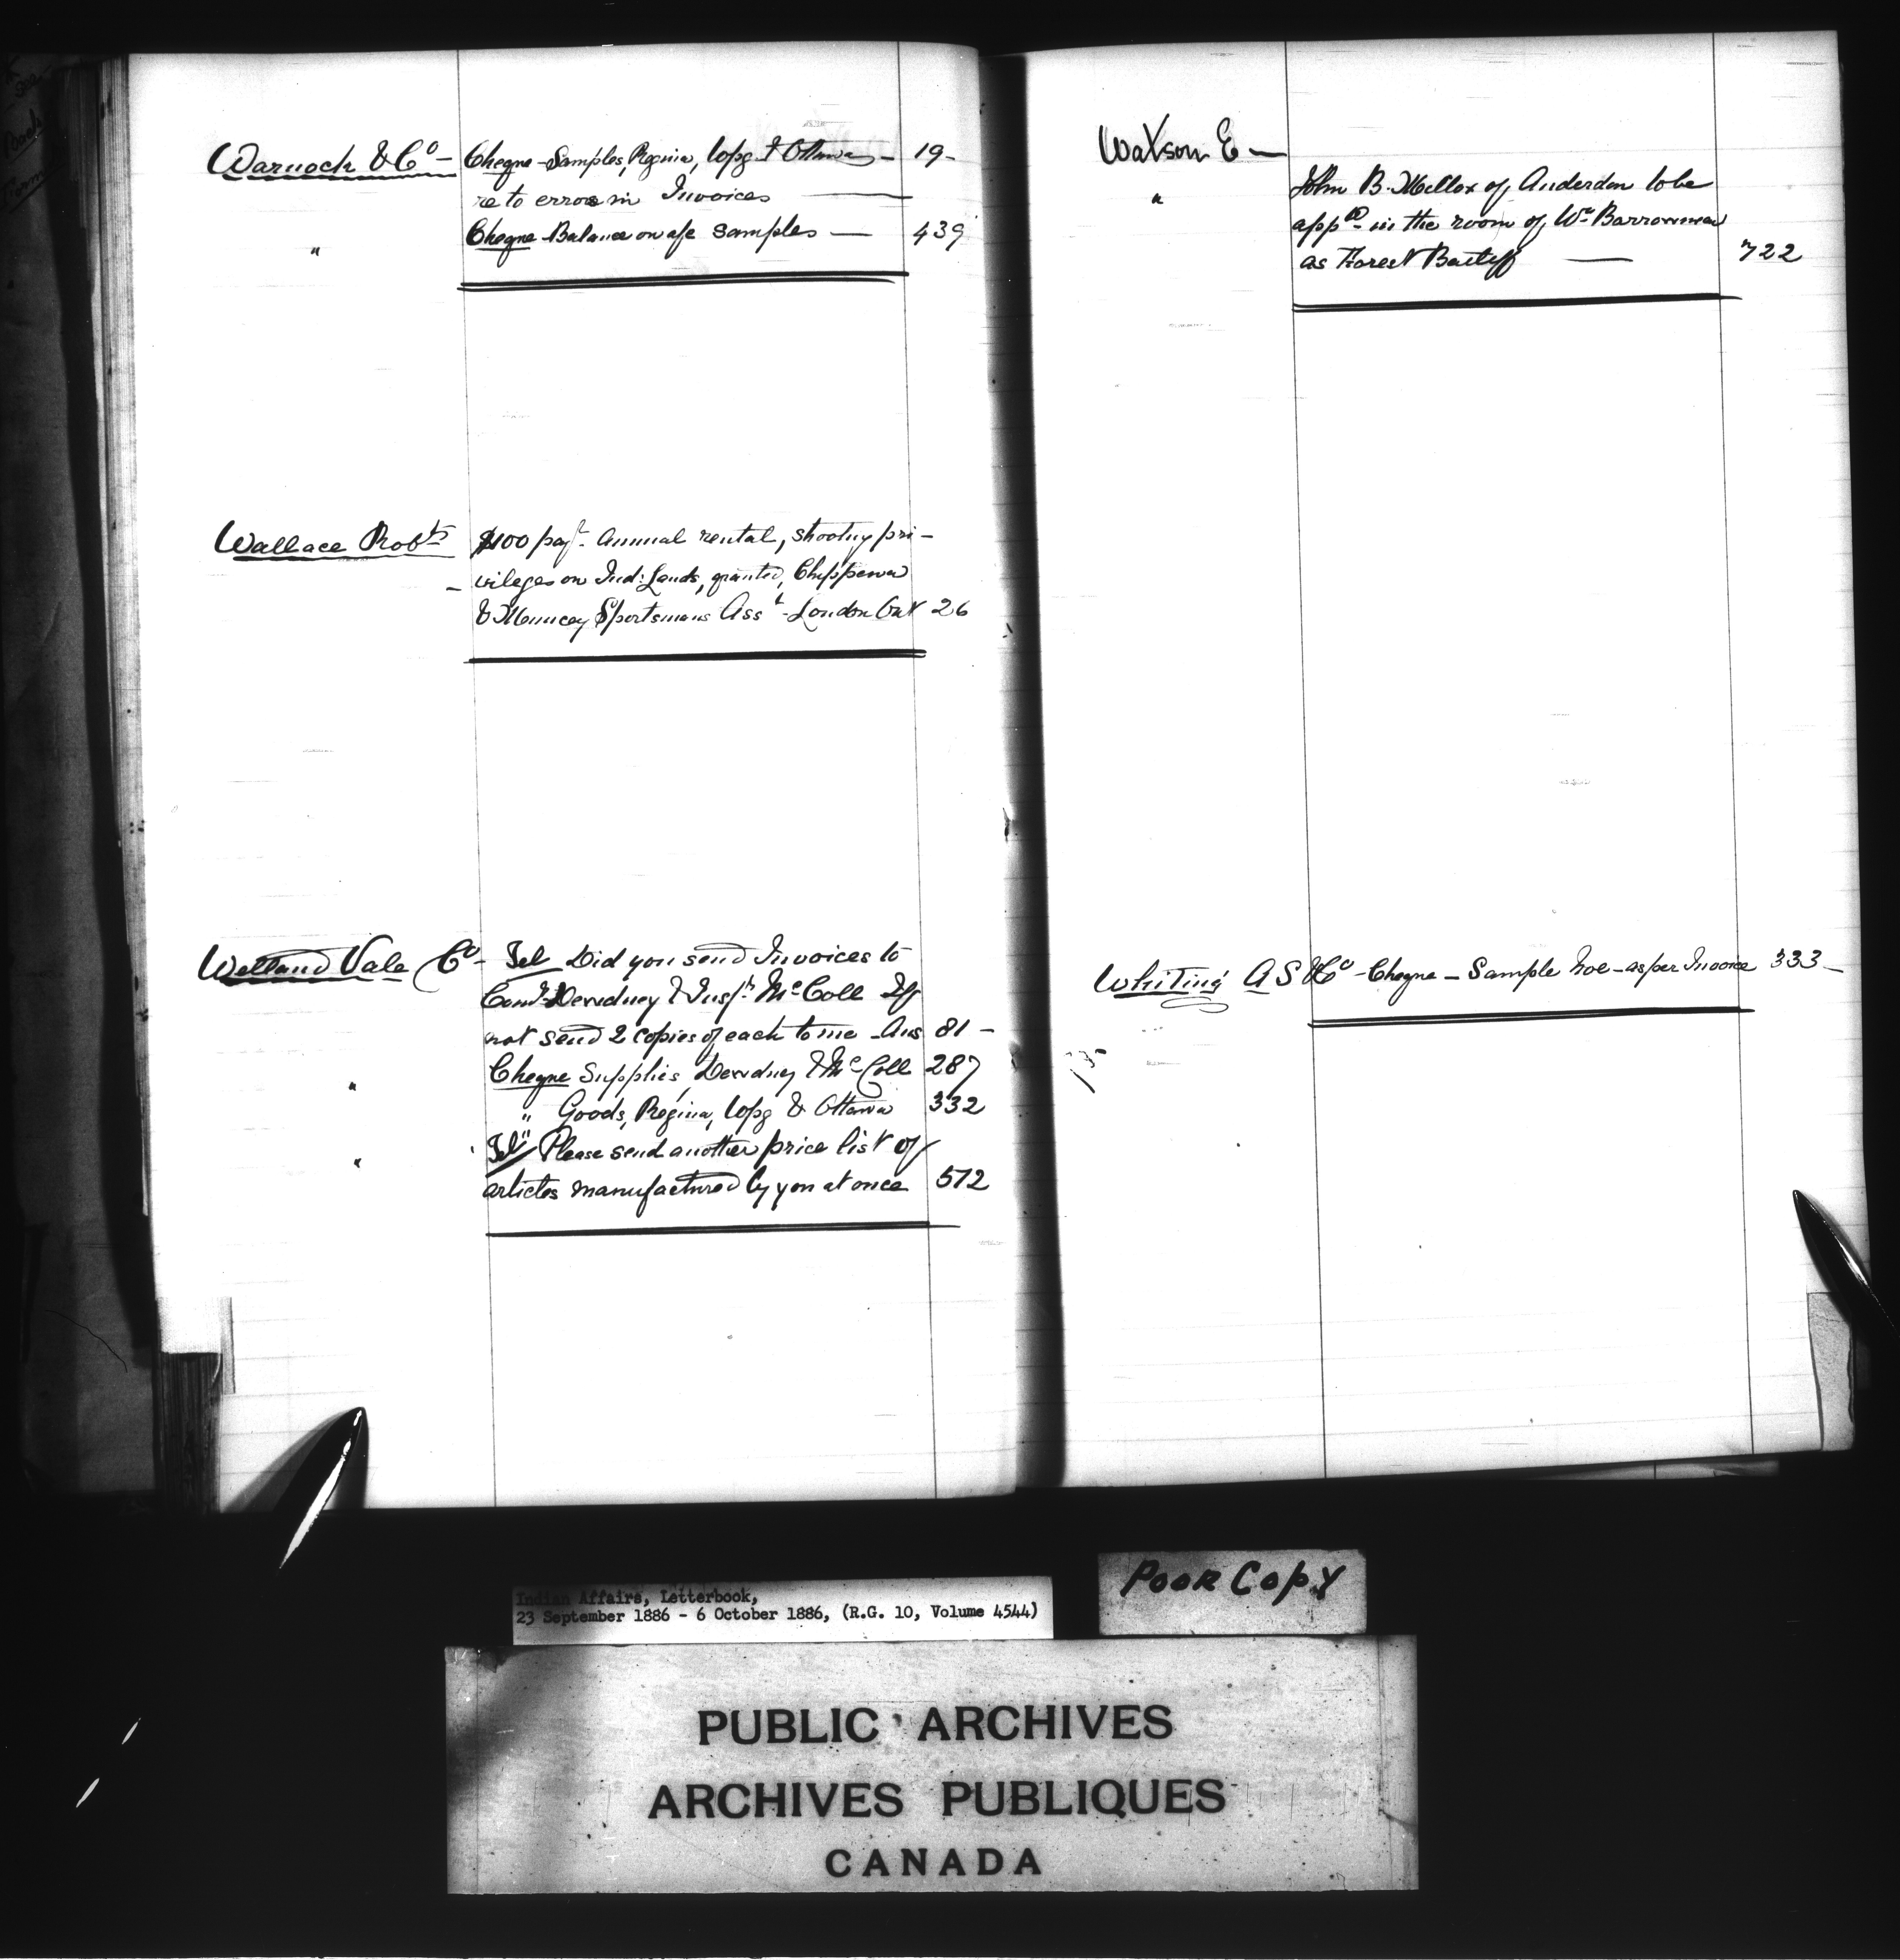 Warnock & Co - Cheque - Samples, Regina, Wpg & Ottawa - 19 -
re to errors in Invoices —
" Cheque Balance on a/c samples — 439
Wallace Robt $100 payt. Annual rental, shooting pri-
- vileges on Ind: Lands, granted, Chippewa
& Muncey Sportsmans Assn - London Ont 26
Welland Vale Co - Tel Did you send Invoices to
Comr. Dewdney & Inspr. McColl If
not send 2 copies of each to me - Ans 81 -
" Cheque Supplies, Dewdney & McColl 287
" Goods, Regina, Wpg & Ottawa 332
" Tel" Please send another price list of
articles manufactured by you at once 572
Watson E —
" John B. Mellox of Anderdon to be
appd in the room of Wm Barrowman
as Forest Bailiff — 722
Whiting A S & Co - Cheque - Sample hoe - as per Invoice 333 -
Indian Affairs, Letterbook,
23 September 1886 - 6 October 1886, (R.G. 10, Volume 4544)
Poor Copy
PUBLIC ARCHIVES
ARCHIVES PUBLIQUES
CANADA